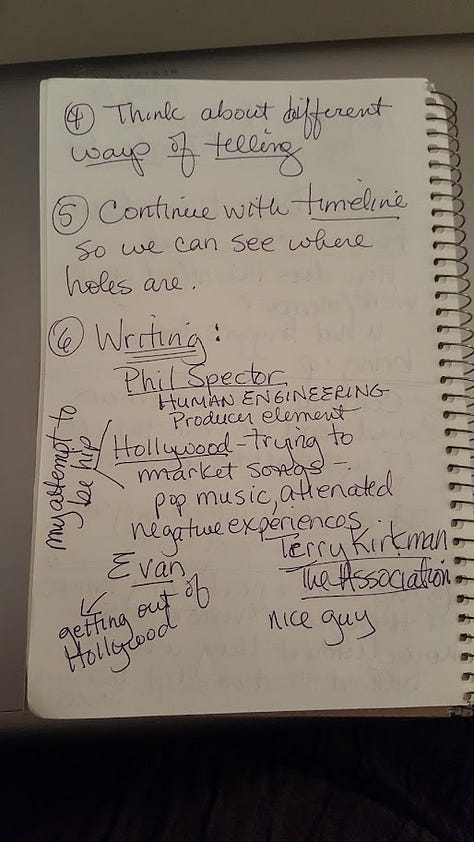 ④ Think about different
ways of telling
⑤ Continue with timeline
so we can see where
holes are.
⑥ Writing:
Phil Spector
HUMAN ENGINEERING
Producer element
my attempt to
be hip
Hollywood - trying to
market songs -
pop music, alienated
negative experiences
Terry Kirkman
The Association
nice guy
Evan
getting out of
Hollywood